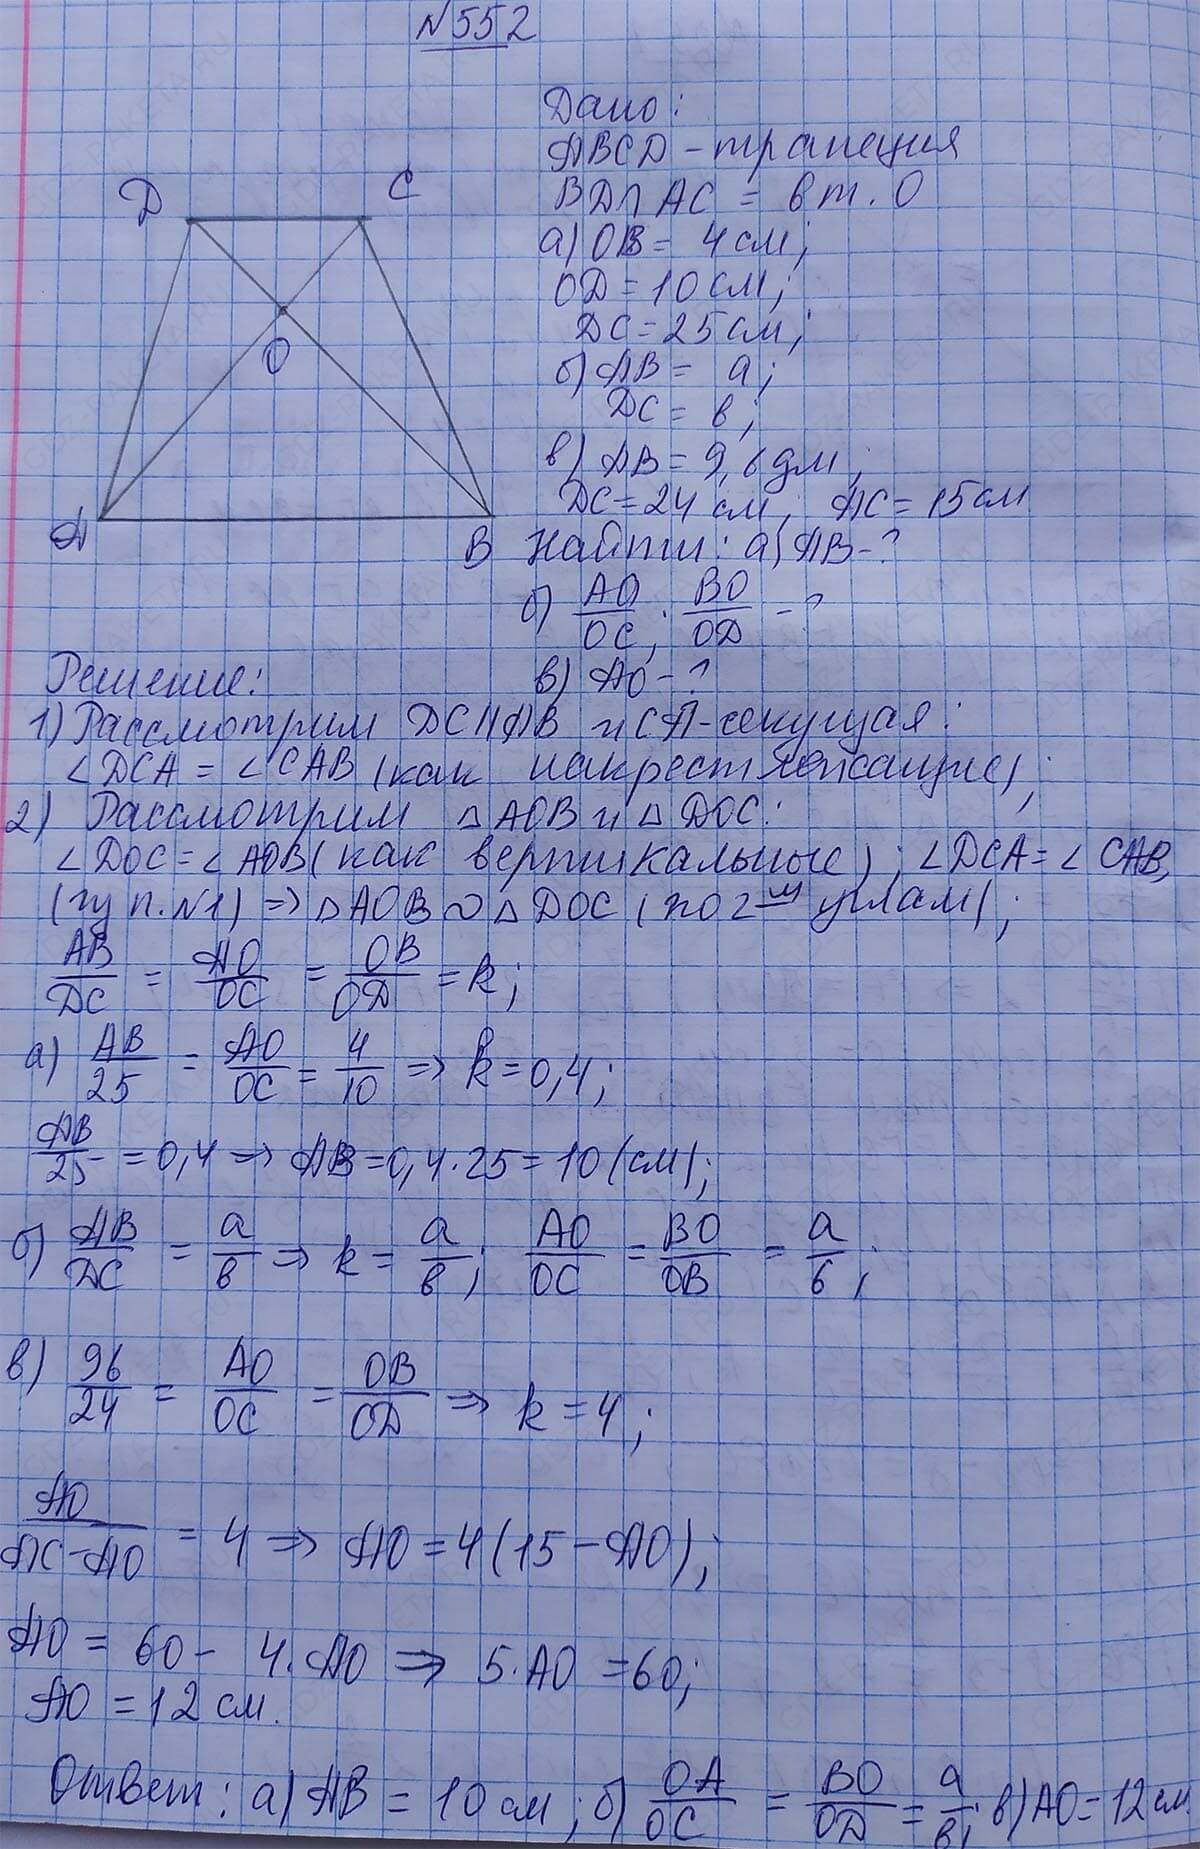 №552
Дано:
ABCD - трапеция
BD∩AC = в т. O
а) OB = 4 см;
OD = 10 см;
DC = 25 см;
б) AB = a;
DC = в;
в) AB = 9,6 дм;
DC = 24 см; AC = 15 см
D C
O
A B
Найти: а) AB - ?
б) AO/OC; BO/OD - ?
в) AO - ?
Решение:
1) Рассмотрим DC || AB и CA - секущая:
∠DCA = ∠CAB (как накрест лежащие);
2) Рассмотрим △AOB и △DOC:
∠DOC = ∠AOB (как вертикальные); ∠DCA = ∠CAB,
(из п. №1) => △AOB ∾ △DOC (по 2-м углам);
AB/DC = AO/OC = OB/OD = k;
а) AB/25 = AO/OC = 4/10 => k = 0,4;
AB/25 = 0,4 => AB = 0,4 · 25 = 10 (см);
б) AB/DC = a/в => k = a/в; AO/OC = BO/OB = a/б;
в) 96/24 = AO/OC = OB/OD => k = 4;
AO/AC-AO = 4 => AO = 4(15 - AO);
AO = 60 - 4·AO => 5·AO = 60;
AO = 12 см.
Ответ: а) AB = 10 см; б) OA/OC = BO/OD = a/в; в) AO = 12 см